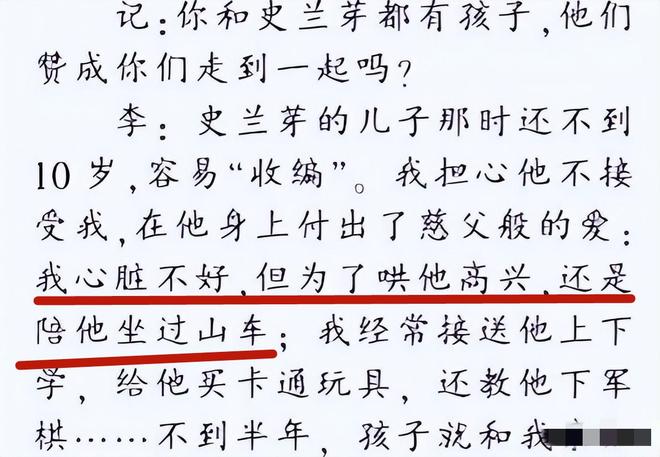 记:你和史兰芽都有孩子,他们
赞成你们走到一起吗?
李: 史兰芽的儿子那时还不到
10岁,容易“收编”。我担心他不接
受我,在他身上付出了慈父般的爱:
我心脏不好,但为了哄他高兴,还是
陪他坐过山车; 我经常接送他上下
学, 给他买卡通玩具, 还教他下军
棋……不到半年, 孩子就和我